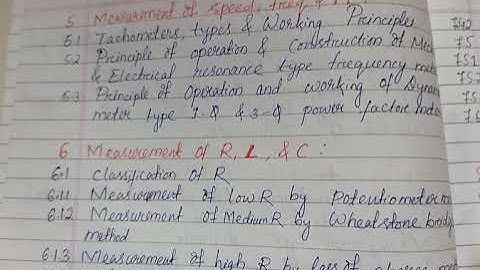 5 Measurement of speed, freq &
5.1 Tachometers, types & Working Principles 7.4.2
5.2 Principle of operation & Construction of 7.5
& Electrical resonance type frequency 7.5.1
5.3 Principle of Operation and working of 7.5.2
meter type 1-Φ & 3-Φ power factor
6 Measurement of R, L, & C :
6.1 Classification of R
6.1.1 Measurement of low R by Potentiometer
6.1.2 Measurement of Medium R by Wheatstone
method
6.1.3 Measurement of high R by loss of